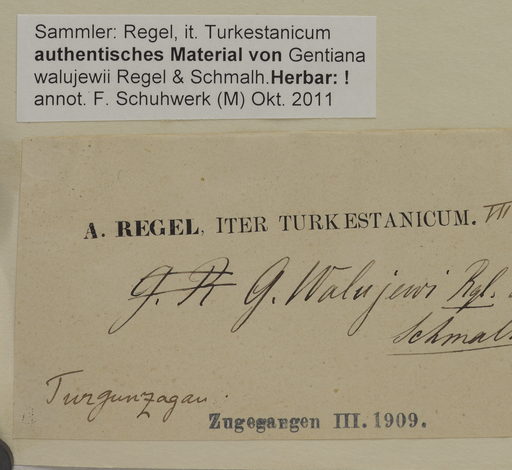 Sammler: Regel, it. Turkestanicum
authentisches Material von Gentiana
walujewii Regel & Schmalh.Herbar: !
annot. F. Schuhwerk (M) Okt. 2011
A. REGEL, ITER TURKESTANICUM. VII
G. Walujewi Rgl.
Schmalh
Turgunzagan.
Zugegangen III. 1909.